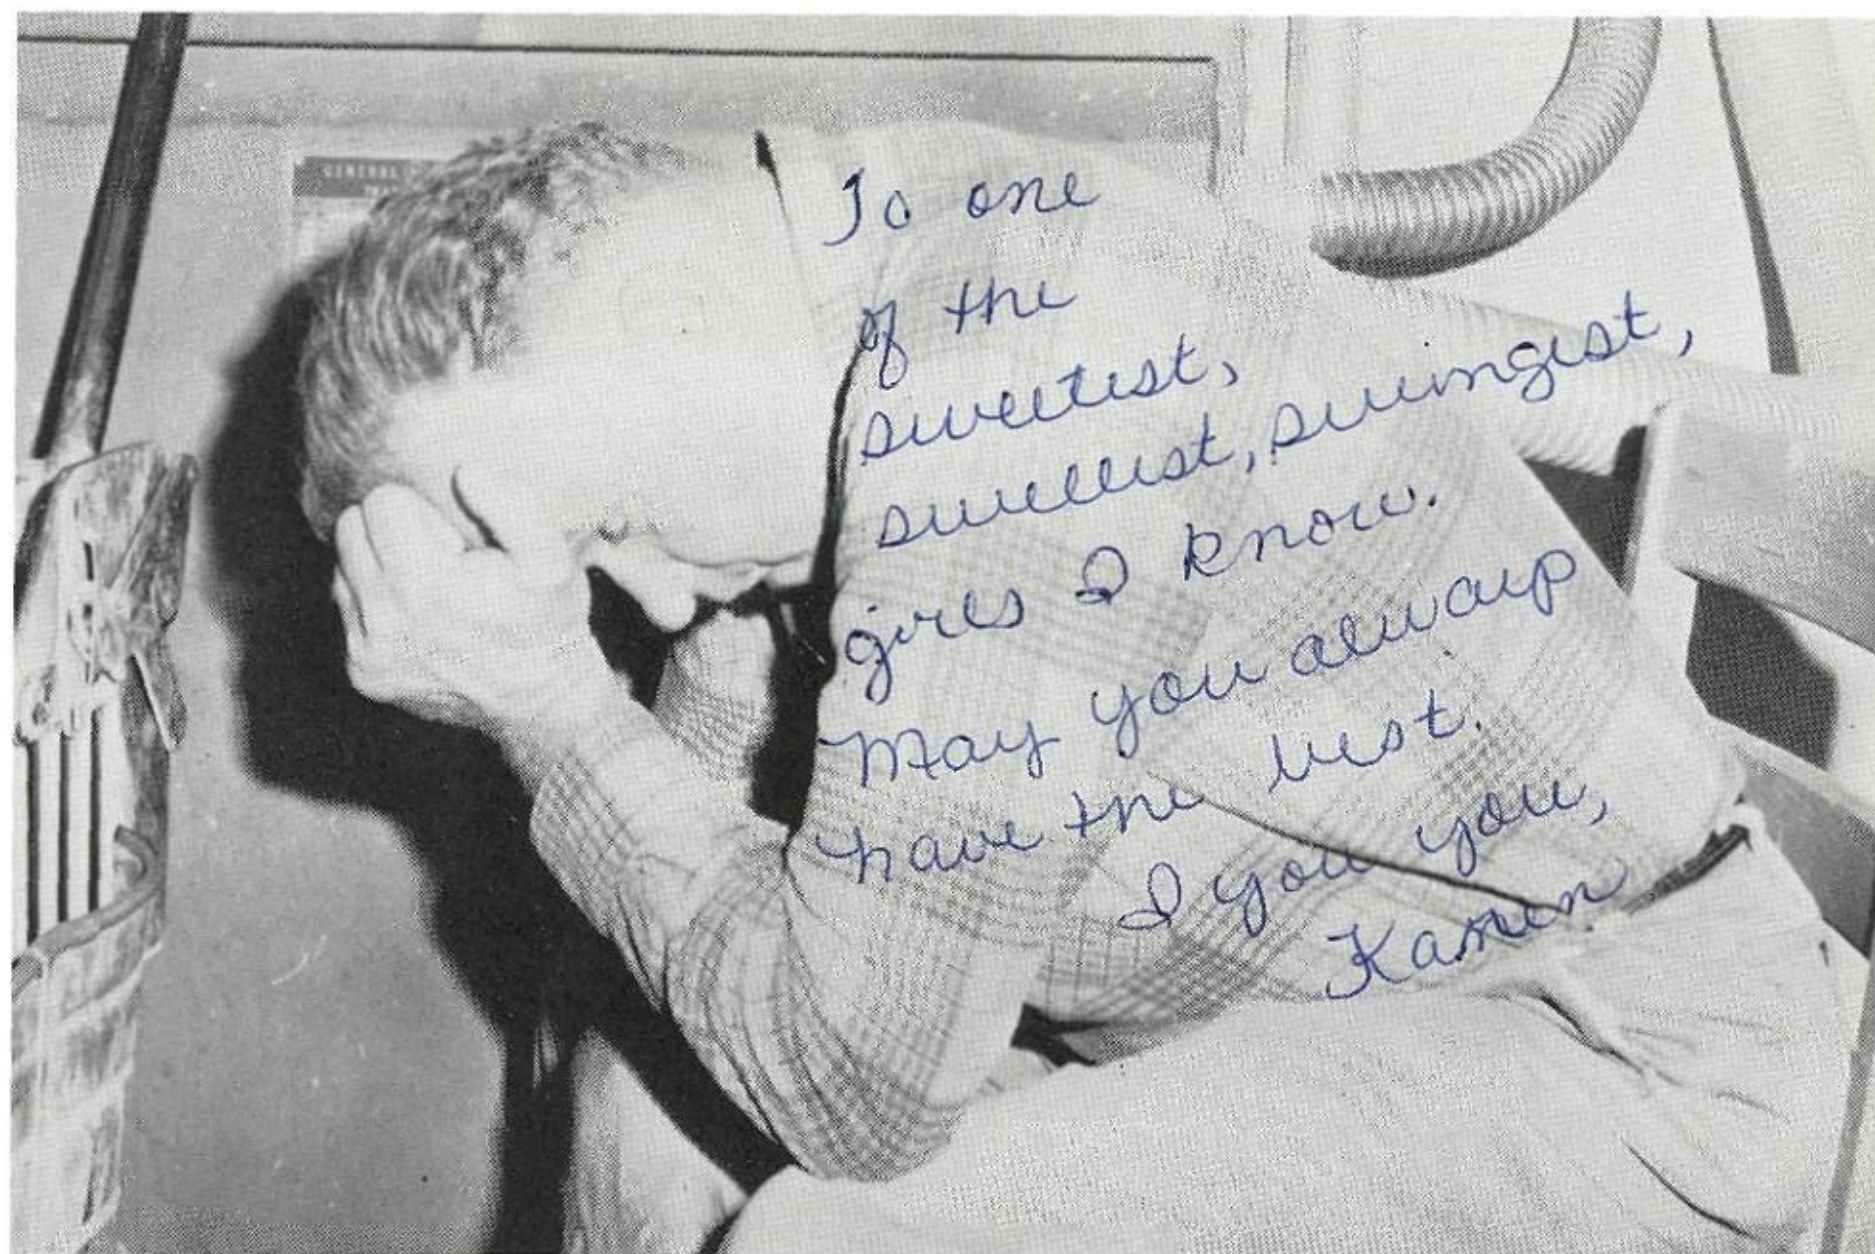 GENERAL
To one
of the
sweetest,
swellest, swingest,
girls I know.
May you always
have the best.
I you you,
Karen